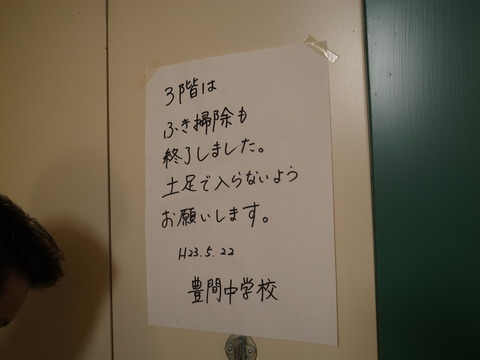 3階は
ふき掃除も
終了しました。
土足で入らないよう
お願いします。
H23.5.22
豊間中学校